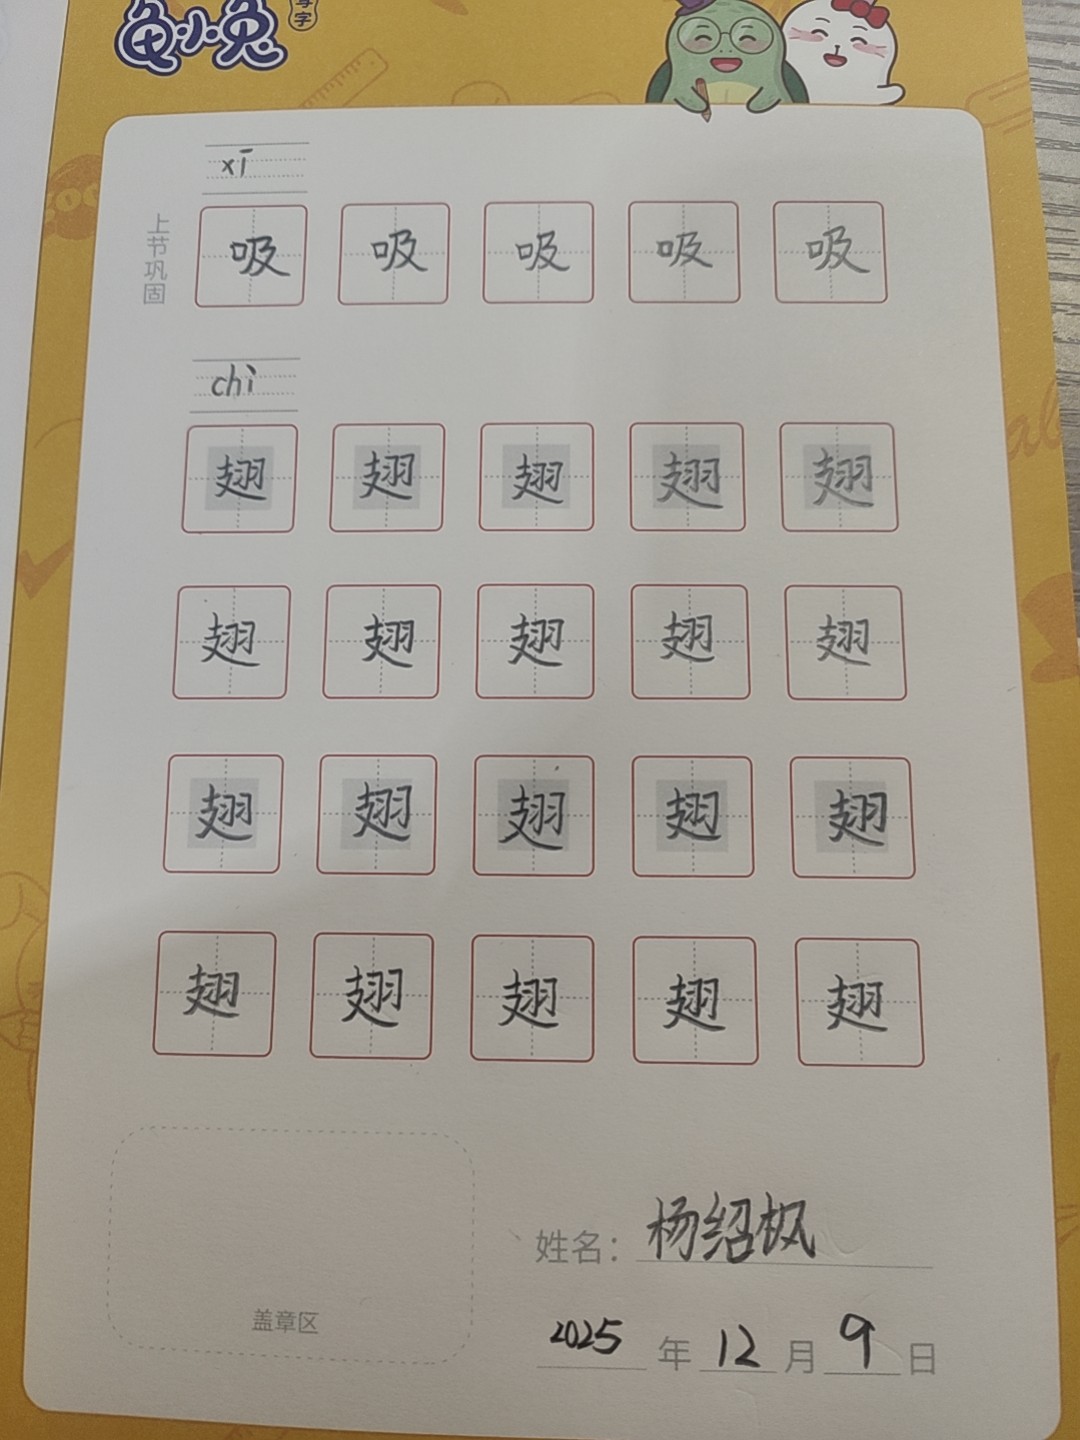 龟小兔
写字
xī
上节巩固
吸 吸 吸 吸 吸
chì
翅 翅 翅 翅 翅
翅 翅 翅 翅 翅
翅 翅 翅 翅 翅
翅 翅 翅 翅 翅
姓名：杨绍枫
盖章区
2025 年 12 月 9 日